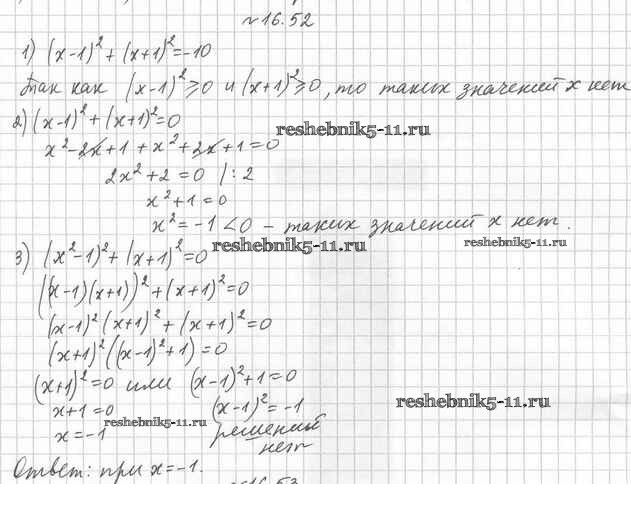 №16.52
1) (x-1)² + (x+1)² = -10
Так как (x-1)² ≥ 0 и (x+1)² ≥ 0, то таких значений x нет
2) (x-1)² + (x+1)² = 0
reshebnik5-11.ru
x² - 2x + 1 + x² + 2x + 1 = 0
2x² + 2 = 0 | : 2
x² + 1 = 0
x² = -1 < 0 - таких значений x нет.
3) (x²-1)² + (x+1)² = 0
reshebnik5-11.ru
reshebnik5-11.ru
((x-1)(x+1))² + (x+1)² = 0
(x-1)² (x+1)² + (x+1)² = 0
(x+1)² ((x-1)² + 1) = 0
(x+1)² = 0 или (x-1)² + 1 = 0
x+1 = 0 (x-1)² = -1
reshebnik5-11.ru
reshebnik5-11.ru
x = -1 решений
нет
Ответ: при x = -1.
№16.53